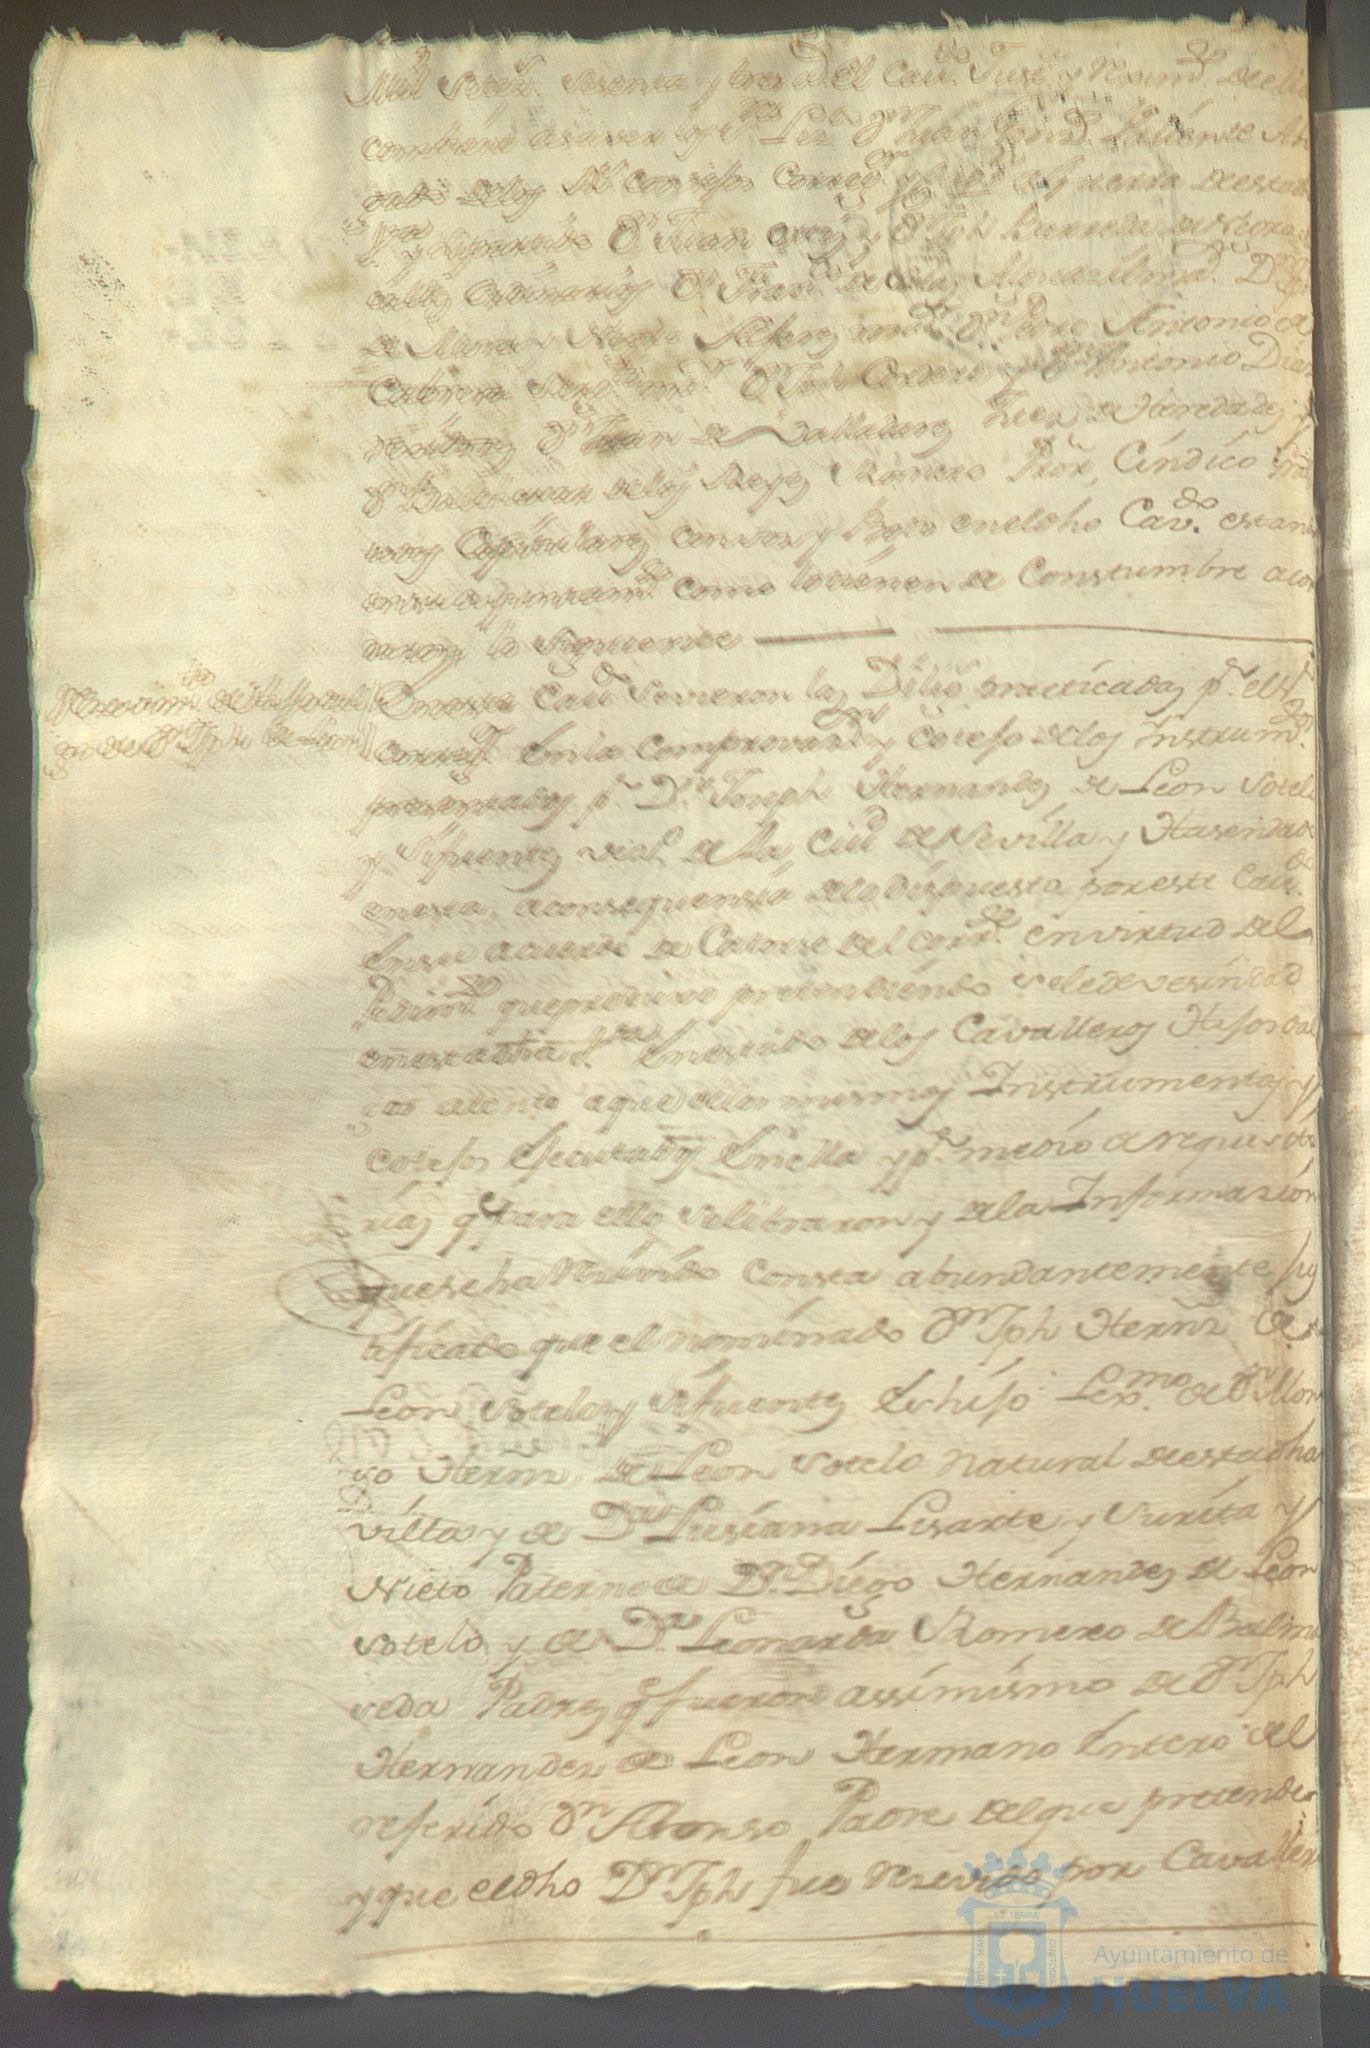 Mill Setez.s Sesenta y tres a.s El Cav.do Just.a y Reximi.to de ella
combiene a saver los S.res Liz.do D.n Juan
gado de los R.s Consejos Correg.or y Cap.n a Guerra de esta
V.a y su partido D.n Juan y D.n Jph Barreda
caldes Ordinarios D.n Fran.co de Alguacil m.or D.n
de Mora y Negro Alferez m.or D.n Pedro Antonio de
Cabrera m.or D.n Jph Cordero y D.n Antonio Diaz
Rexidores D.n Juan de Valladares Juez de Heredades y
D.n Balthasar de los Reyes Romero Pror, Cíndico
todos Capitulares con vos y Boto en el dho Cav.do estan
en su Ayuntam.to como lo tienen de Constumbre acor
daron lo siguiente
Rezevimi.to de Hijosdal
go de D.n Jph de Leon
En este Cav.do se vieron las Dilig.s practicadas p.r el S.r
Correg.or en la comprovaz.on y Cotejo de los Instrum.tos
presentados p.r D.n Joseph Hernandez de Leon Sotelo
y Sifuentes vez.o de la Ciu.d de Sevilla y Hasendado
en esta, a consequensia de lo dispuesto por este Cav.do
en su acuerdo de Catorse del corr.te en virtud del
Pedim.to que produxo pretendiéndo se le de vesindad
en esta dha V.a en estado de los Cavalleros Hijosdal
go atento a que de los mismos Instrumentos y
cotejos Executados en ella y p.r medio de requisito
rias q.e para ello se libraron y de la Informasión
que se ha Resivido consta abundantemente jus
tificado que el nominado D.n Jph Hern.z de
Leon Sotelo y Sifuentes Es hijo Lex.mo de D.n Alon
so Hern.z de Leon Sotelo natural de esta dha
villa y de D.a Lusiana Lisarte y Surita y
Nieto Paterno de D.n Diego Hernandez de Leon
Sotelo y de D.a Leonarda Romero de Balma
seda Padres q.e fueron assimismo de D.n Jph
Hernandez de Leon Hermano Entero del
referido D.n Alonso Padre del que pretende
y que el dho D.n Jph fue Rezevido por Cavallero
Ayuntamiento de
HUELVA